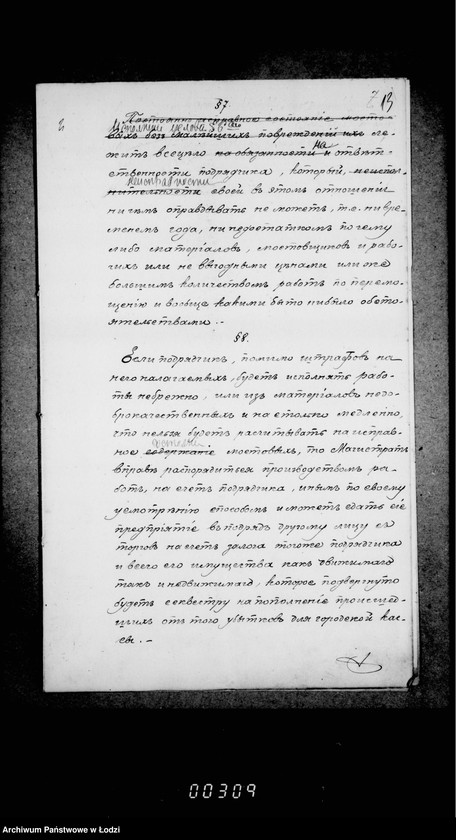 7 13
§ 7.
Постоянно исправное состояніе мосто-
Исполненіе условія § 6
выхъ безъ малѣйшихъ поврежденій ихъ ле-
житъ всецѣло на обязанности и на отвѣт-
ственности подрядчика, который, неиспол-
неисправности
нительности своей въ этомъ отношеніи
ничѣмъ оправдывать не можетъ, т.е. ни вре-
менемъ года, ни недостаткомъ почему
либо матеріаловъ, мостовщиковъ и рабо-
чихъ или не выгодными цѣнами или же
большимъ количествомъ работъ по перемо-
щенію и вообще какими бы то ни было обсто-
ятельствами. -
§ 8.
Если подрядчикъ, помимо штрафовъ на
него налагаемыхъ, будетъ исполнять рабо-
ты небрежно, или изъ матеріаловъ недо-
брокачественныхъ и настолько медленно,
что нельзя будетъ расчитывать на исправ-
состояніе
ное содержаніе мостовыхъ, то Магистратъ
вправѣ распорядиться производствомъ ра-
ботъ, на счетъ подрядчика, инымъ по своему
усмотрѣнію способомъ и можетъ сдать сіе
предпріятіе въ подрядъ другому лицу съ
торговъ на счетъ залога того же подрядчика
и всего его имущества какъ движимаго
такъ и недвижимаго, которое подвергнуто
будетъ секвестру на пополненіе происшед-
шихъ отъ того убытковъ для городской кас-
сы. -
00309
Archiwum Państwowe w Łodzi